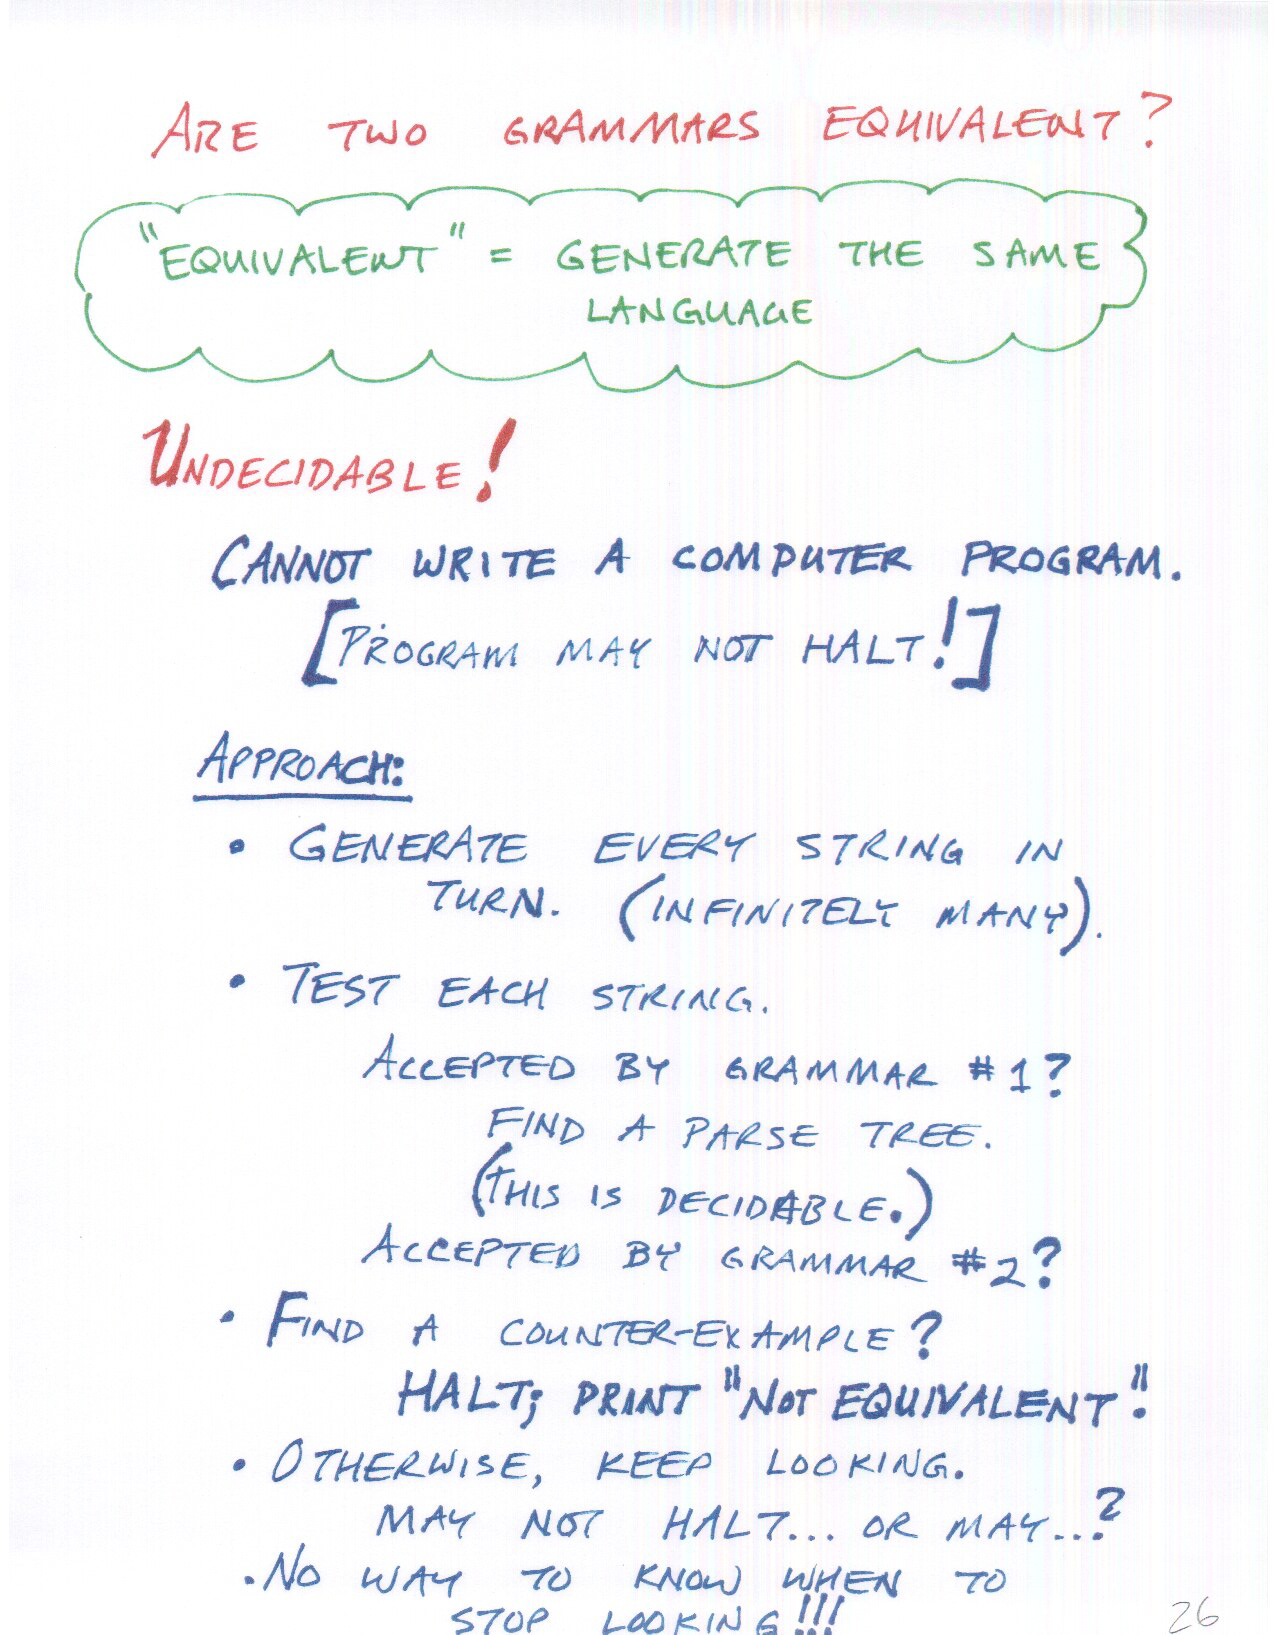 ARE TWO GRAMMARS EQUIVALENT?
"EQUIVALENT" = GENERATE THE SAME
LANGUAGE
UNDECIDABLE!
CANNOT WRITE A COMPUTER PROGRAM.
[PROGRAM MAY NOT HALT!]
APPROACH:
• GENERATE EVERY STRING IN
TURN. (INFINITELY MANY).
• TEST EACH STRING.
ACCEPTED BY GRAMMAR #1?
FIND A PARSE TREE.
(THIS IS DECIDABLE.)
ACCEPTED BY GRAMMAR #2?
• FIND A COUNTER-EXAMPLE?
HALT; PRINT "NOT EQUIVALENT".
• OTHERWISE, KEEP LOOKING.
MAY NOT HALT... OR MAY...?
• NO WAY TO KNOW WHEN TO
STOP LOOKING!!!
26